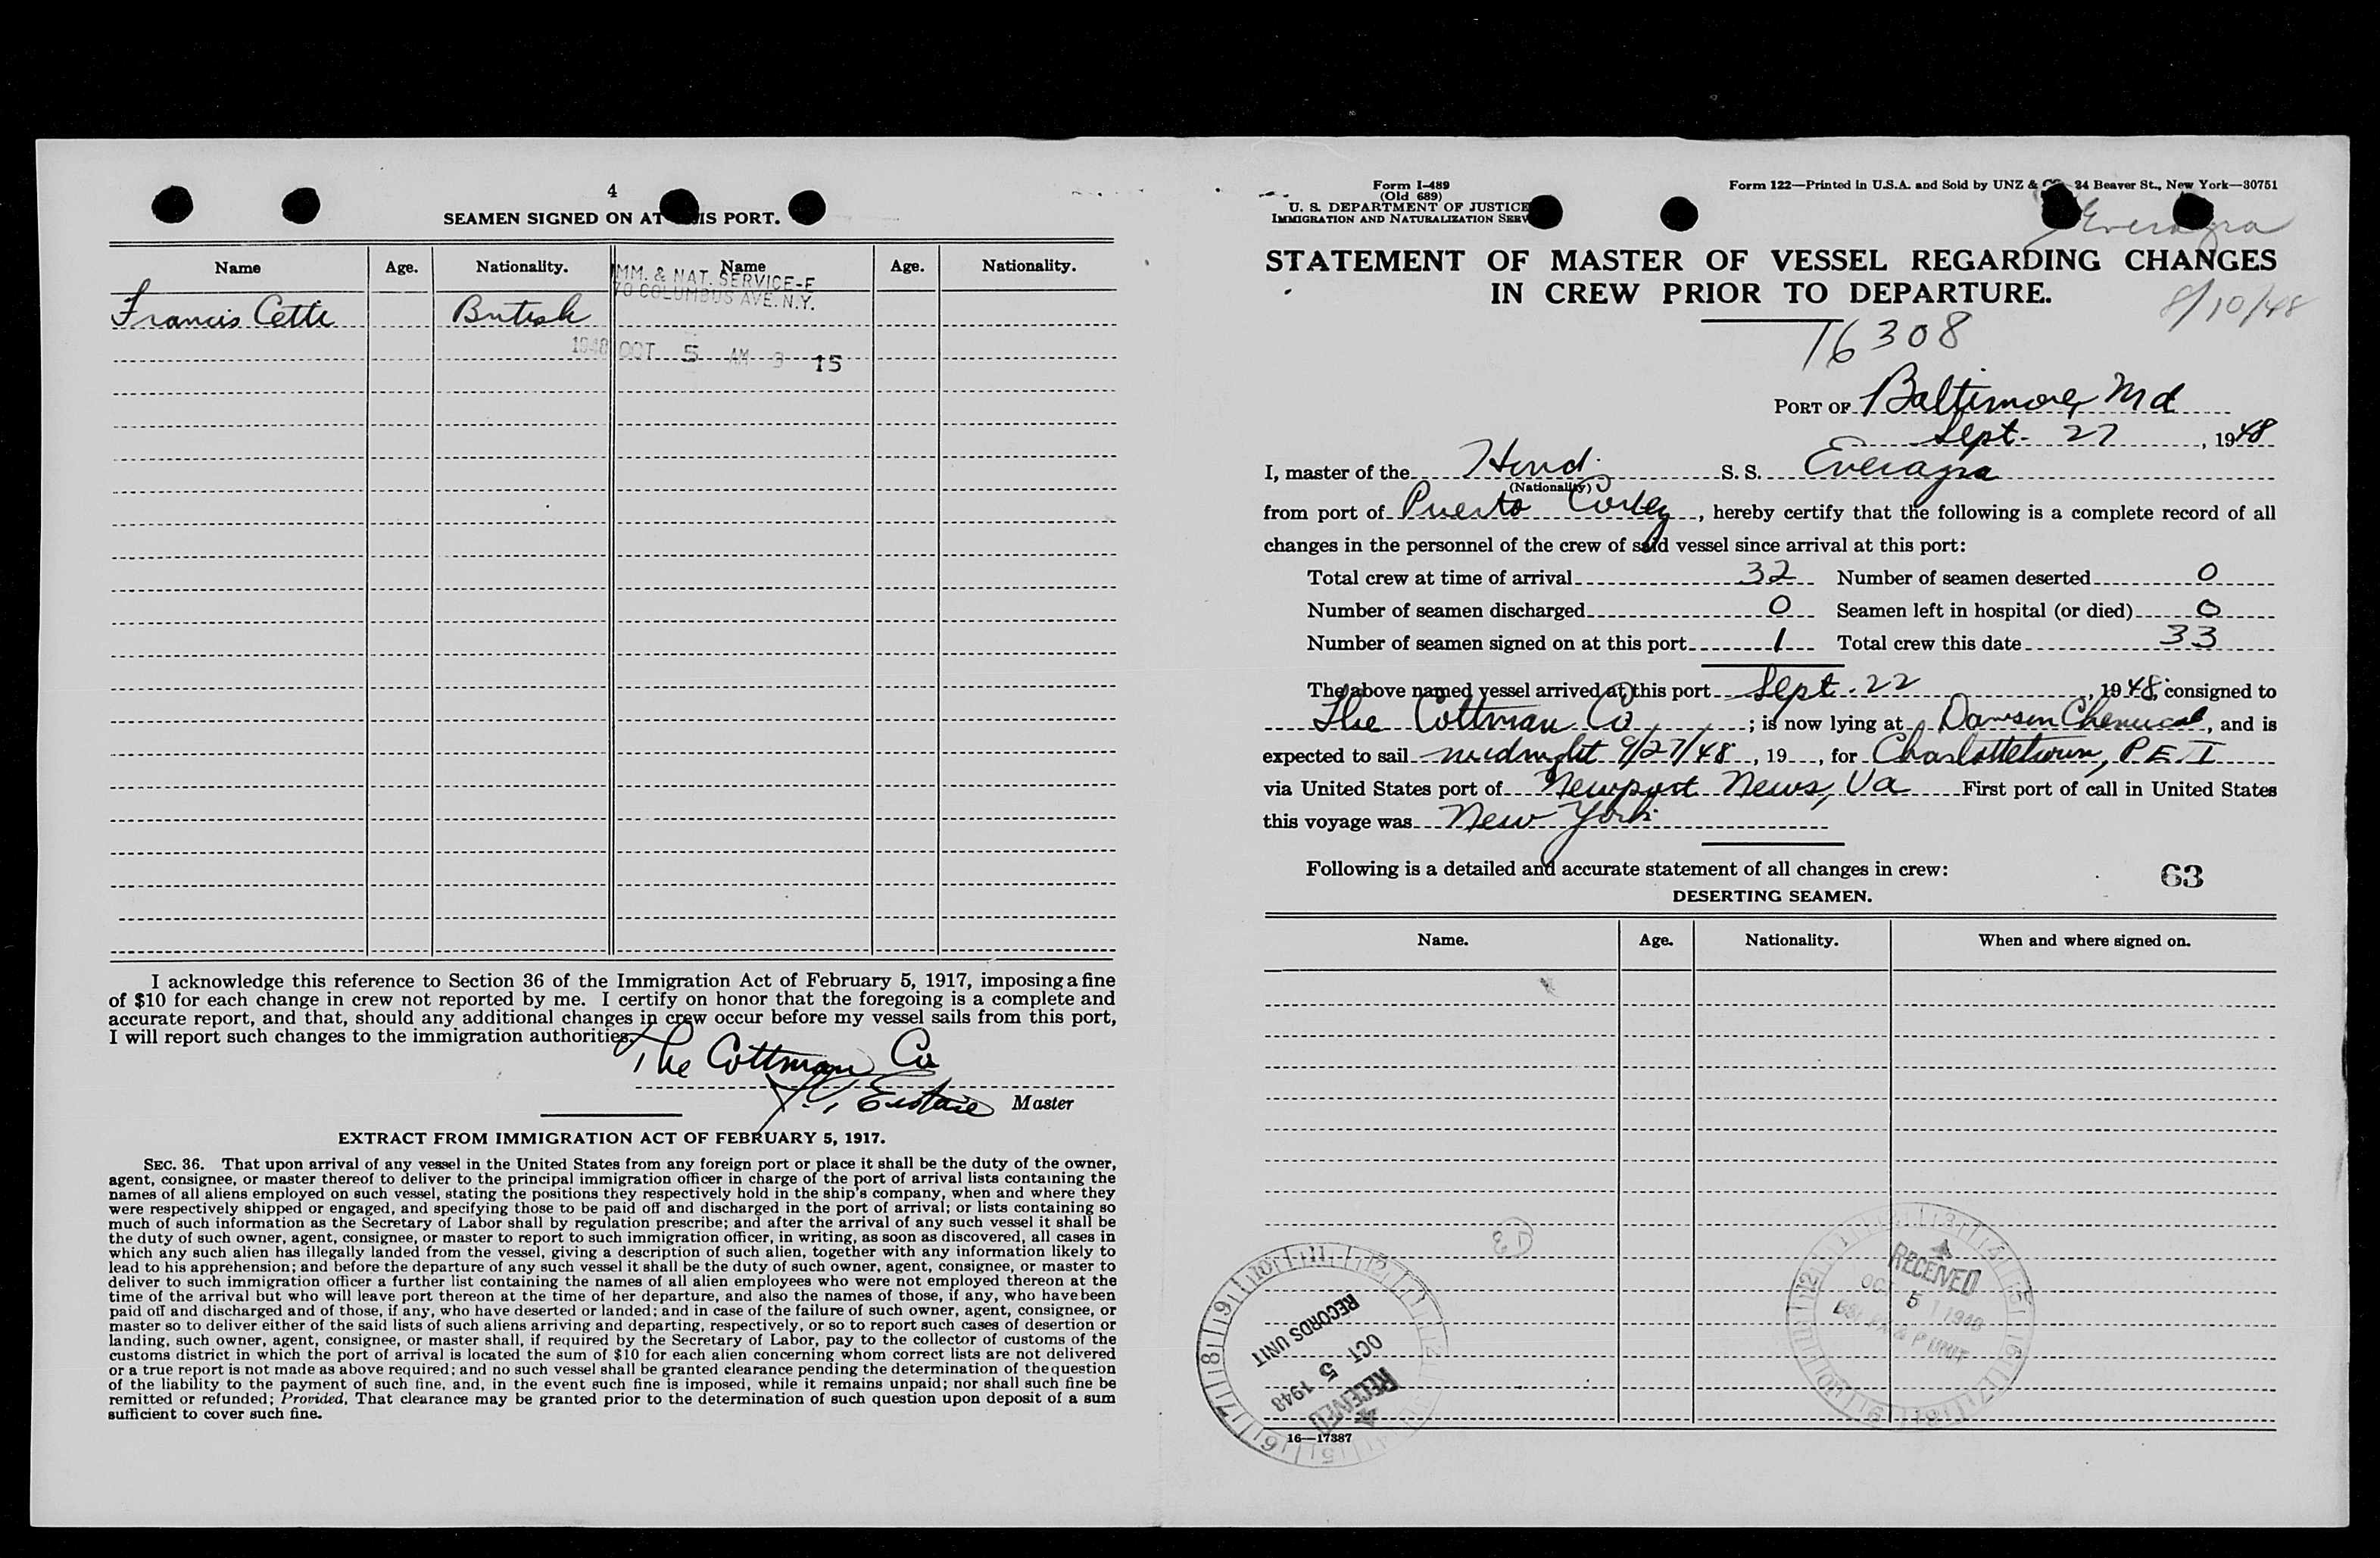 4
SEAMEN SIGNED ON AT THIS PORT.
Name Age. Nationality. Name Age. Nationality.
IMM. & NAT. SERVICE-E
70 COLUMBUS AVE. N.Y.
Francis Cette British
1948 OCT 5 AM 9 15
I acknowledge this reference to Section 36 of the Immigration Act of February 5, 1917, imposing a fine
of $10 for each change in crew not reported by me. I certify on honor that the foregoing is a complete and
accurate report, and that, should any additional changes in crew occur before my vessel sails from this port,
I will report such changes to the immigration authorities.
The Cottman Co
Master
EXTRACT FROM IMMIGRATION ACT OF FEBRUARY 5, 1917.
SEC. 36. That upon arrival of any vessel in the United States from any foreign port or place it shall be the duty of the owner,
agent, consignee, or master thereof to deliver to the principal immigration officer in charge of the port of arrival lists containing the
names of all aliens employed on such vessel, stating the positions they respectively hold in the ship's company, when and where they
were respectively shipped or engaged, and specifying those to be paid off and discharged in the port of arrival; or lists containing so
much of such information as the Secretary of Labor shall by regulation prescribe; and after the arrival of any such vessel it shall be
the duty of such owner, agent, consignee, or master to report to such immigration officer, in writing, as soon as discovered, all cases in
which any such alien has illegally landed from the vessel, giving a description of such alien, together with any information likely to
lead to his apprehension; and before the departure of any such vessel it shall be the duty of such owner, agent, consignee, or master to
deliver to such immigration officer a further list containing the names of all alien employees who were not employed thereon at the
time of the arrival but who will leave port thereon at the time of her departure, and also the names of those, if any, who have been
paid off and discharged and of those, if any, who have deserted or landed; and in case of the failure of such owner, agent, consignee, or
master so to deliver either of the said lists of such aliens arriving and departing, respectively, or so to report such cases of desertion or
landing, such owner, agent, consignee, or master shall, if required by the Secretary of Labor, pay to the collector of customs of the
customs district in which the port of arrival is located the sum of $10 for each alien concerning whom correct lists are not delivered
or a true report is not made as above required; and no such vessel shall be granted clearance pending the determination of the question
of the liability to the payment of such fine, and, in the event such fine is imposed, while it remains unpaid; nor shall such fine be
remitted or refunded; Provided, That clearance may be granted prior to the determination of such question upon deposit of a sum
sufficient to cover such fine.
Form I-489
(Old 689)
U. S. DEPARTMENT OF JUSTICE
IMMIGRATION AND NATURALIZATION SERV
Form 122—Printed in U.S.A. and Sold by UNZ & CO. 24 Beaver St., New York—30751
Everagra
STATEMENT OF MASTER OF VESSEL REGARDING CHANGES
IN CREW PRIOR TO DEPARTURE.
8/10/48
16308
PORT OF Baltimore, Md
Sept. 27, 1948
I, master of the Hond. S. S. Everagra
(Nationality)
from port of Puerto Cortez, hereby certify that the following is a complete record of all
changes in the personnel of the crew of said vessel since arrival at this port:
Total crew at time of arrival 32 Number of seamen deserted 0
Number of seamen discharged 0 Seamen left in hospital (or died) 0
Number of seamen signed on at this port 1 Total crew this date 33
The above named vessel arrived at this port Sept. 22, 1948, consigned to
The Cottman Co; is now lying at Dawson Chemical, and is
expected to sail midnight 9/27/48, 19 , for Charlottetown, P E I
via United States port of Newport News, Va First port of call in United States
this voyage was New York
Following is a detailed and accurate statement of all changes in crew:
63
DESERTING SEAMEN.
Name. Age. Nationality. When and where signed on.
RECORDS UNIT
OCT 5 1948
RECEIVED
RECEIVED
OCT 5 1948
16—17387